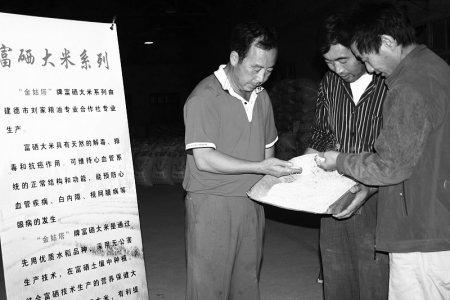 富硒大米系列
“金姑塔”牌富硒大米系列由
建德市刘家粮油专业合作社专业
生产。
富硒大米具有天然的解毒、排
毒和抗癌作用。可维持心血管系
统的正常结构和功能，能预防心
血管疾病、白内障、视网膜病等
眼病的发生。
“金姑塔”牌富硒大米是通过
先用优质水和品种，采用无公害
生产技术，在富硒土壤中种植，
合富硒技术生产的营养保健大
大米，有利线